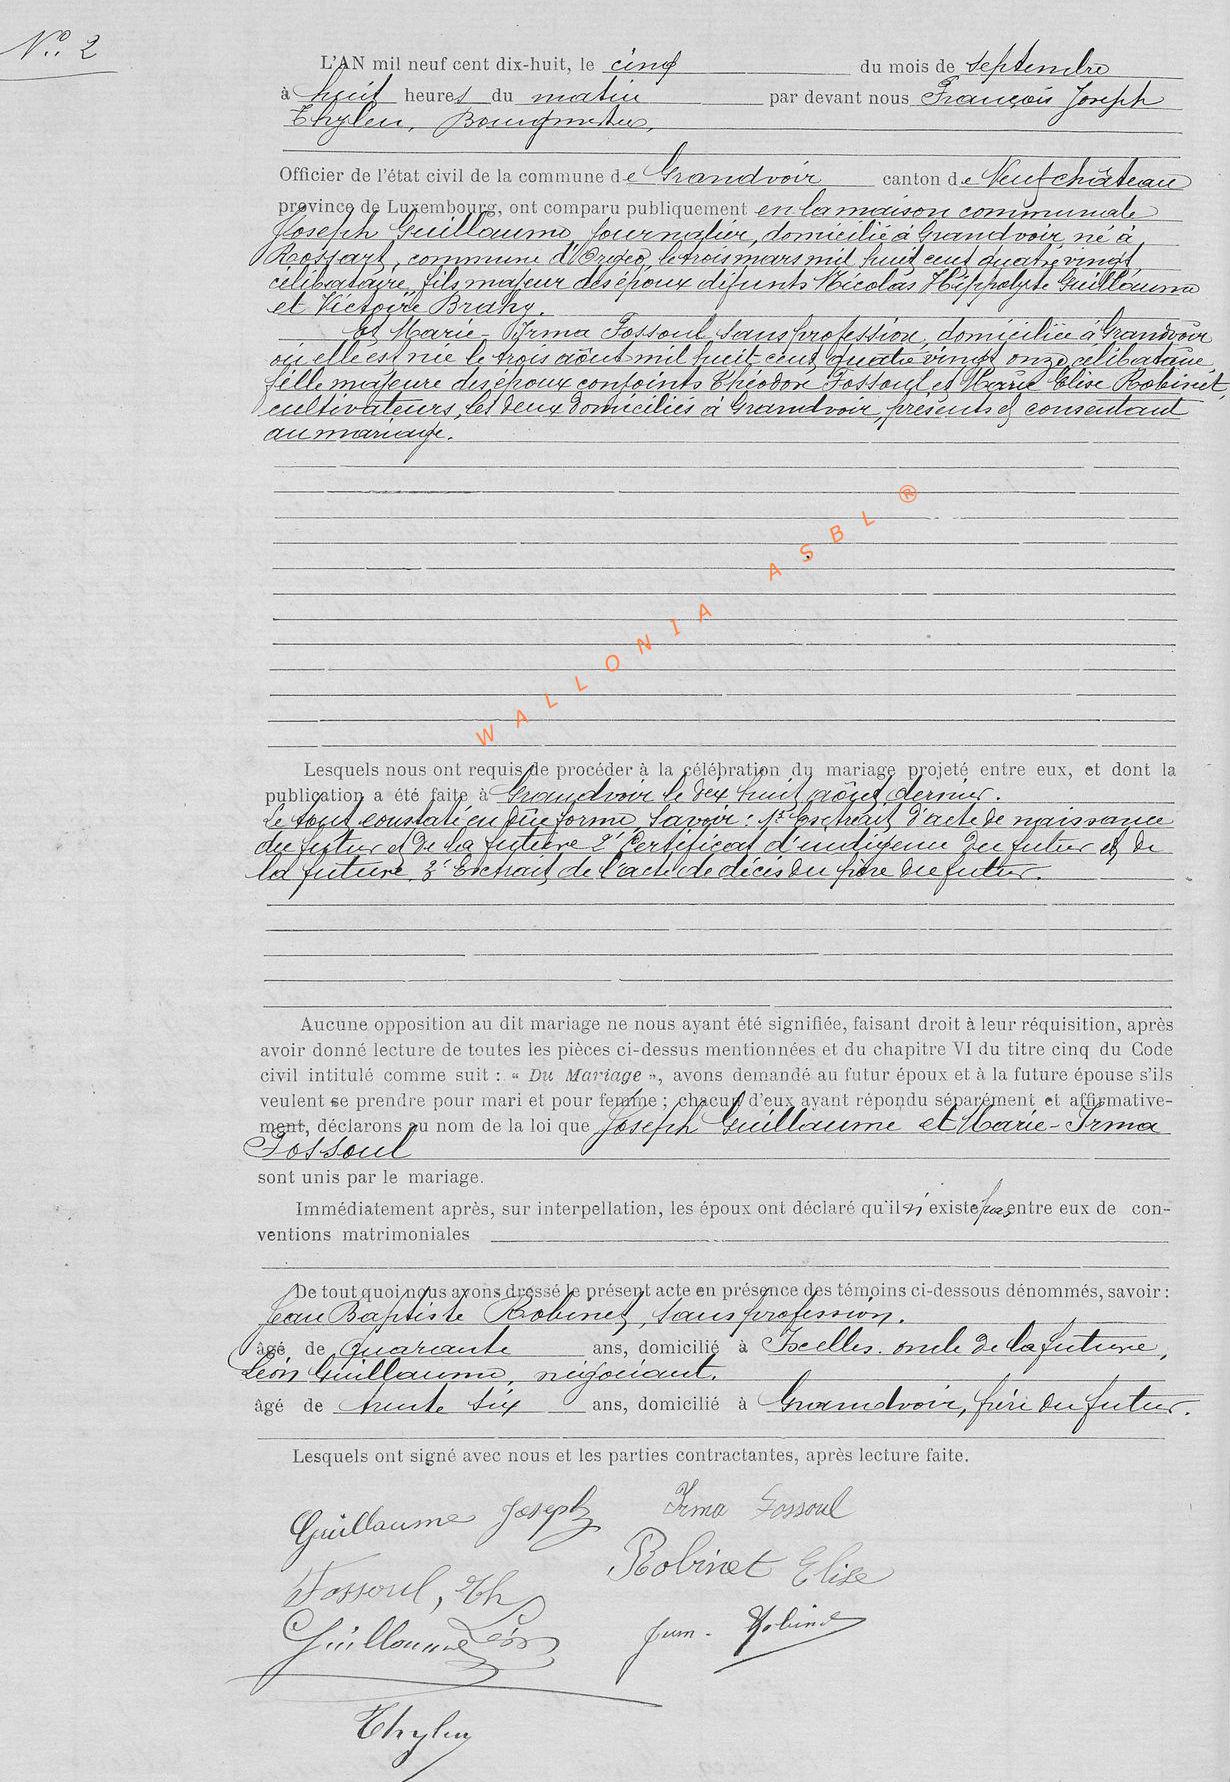 N° 2
L'AN mil neuf cent dix-huit, le cinq du mois de septembre
à huit heures du matin par devant nous François Joseph
Thylen, Bourgmestre,
Officier de l'état civil de la commune de Grandvoir canton de Neufchâteau
province de Luxembourg, ont comparu publiquement en la maison communale
Joseph Guillaume, journalier, domicilié à Grandvoir, né à
Rossart, commune d'Orgeo, le trois mars mil huit cent quatre vingt
célibataire, fils majeur des époux défunts Nicolas Hippolyte Guillaume
et Victoire Brahy.
Et Marie-Irma Fossoul sans profession, domiciliée à Grandvoir
où elle est née le trois août mil huit cent quatre vingt onze, célibataire
fille majeure des époux conjoints Théodore Fossoul et Marie Elise Robinet,
cultivateurs, les deux domiciliés à Grandvoir, présents et consentant
au mariage.
WALLONIA ASBL ®
Lesquels nous ont requis de procéder à la célébration du mariage projeté entre eux, et dont la
publication a été faite à Grandvoir le dix huit août dernier.
Le tout constaté en dûe forme, savoir : 1° Extrait d'acte de naissance
du futur et de la future 2° Certificat d'indigence du futur et de
la future. 3° Extrait de l'acte de décès du père du futur.
Aucune opposition au dit mariage ne nous ayant été signifiée, faisant droit à leur réquisition, après
avoir donné lecture de toutes les pièces ci-dessus mentionnées et du chapitre VI du titre cinq du Code
civil intitulé comme suit : « Du Mariage », avons demandé au futur époux et à la future épouse s'ils
veulent se prendre pour mari et pour femme ; chacun d'eux ayant répondu séparément et affirmative-
ment, déclarons au nom de la loi que Joseph Guillaume et Marie-Irma
Fossoul
sont unis par le mariage.
Immédiatement après, sur interpellation, les époux ont déclaré qu'il n'existe pas entre eux de con-
ventions matrimoniales
De tout quoi nous avons dressé le présent acte en présence des témoins ci-dessous dénommés, savoir :
Jean Baptiste Robinet, sans profession.
âgé de quarante ans, domicilié à Ixelles. oncle de la future,
Léon Guillaume, négociant.
âgé de trente six ans, domicilié à Grandvoir, frère du futur.
Lesquels ont signé avec nous et les parties contractantes, après lecture faite.
Guillaume Joseph Irma Fossoul
Fossoul, Th Robinet Elise
Guillaume Léon Robinet
Thylen